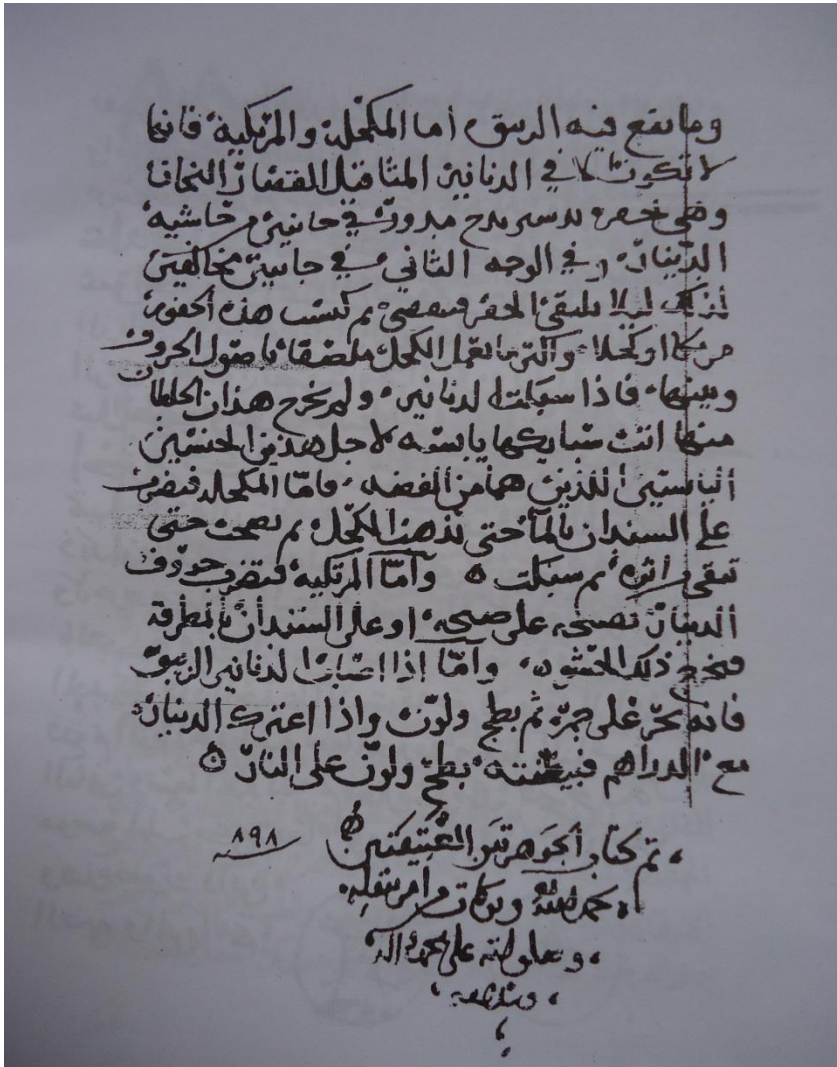 وما يقع فيه الزيبق، أما المكحلة والمرتكية فانها
لا تكون الا في الدنانير المثاقيل القصار الثخانا
وهي تحفر مدورة في جانبين من حاشيه
الدينار، وفي الوجه الثاني في جانبين مخالفين
لذلك ليلا يلتقى الحفر ثم هذه الحفور
مرتكا او كحلا، واكثر ما يعمل الكحل ملصقا باصول الحروف
وبينها، فاذا سبكت الدنانير ولم يخرج هذان الخلطان
منها اتت سبايكها يابسه لاجل هذين الجنسين
اليابسين اللذين هما من الفضه، فامّا المكحله فيضرب
على السندان بالماء حتى يذهب الكحل ثم حتى
تنقى ثم سبكت ٥ وأمّا المرتكيه فتضرب حروف
الدينار على او على السندان بالمطرقة
فيخرج ذلك الحشو، وأمّا إذا اصاب الدنانير الزيبق
فانه على جمر ثم يطبخ ولوّن واذا اعترك الدينار
مع الدراهم فبيضته يطبخ ولوّن على النار ۞
تم كتاب الجوهرتين العتيقتين
سنه ٨٩٨
بحمد الله وبركات
وصلواته على محمد واله